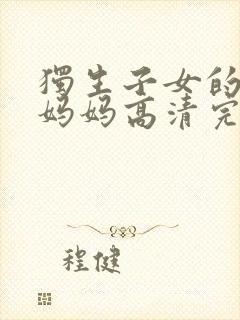 獨生子女的
妈妈高清完
程健